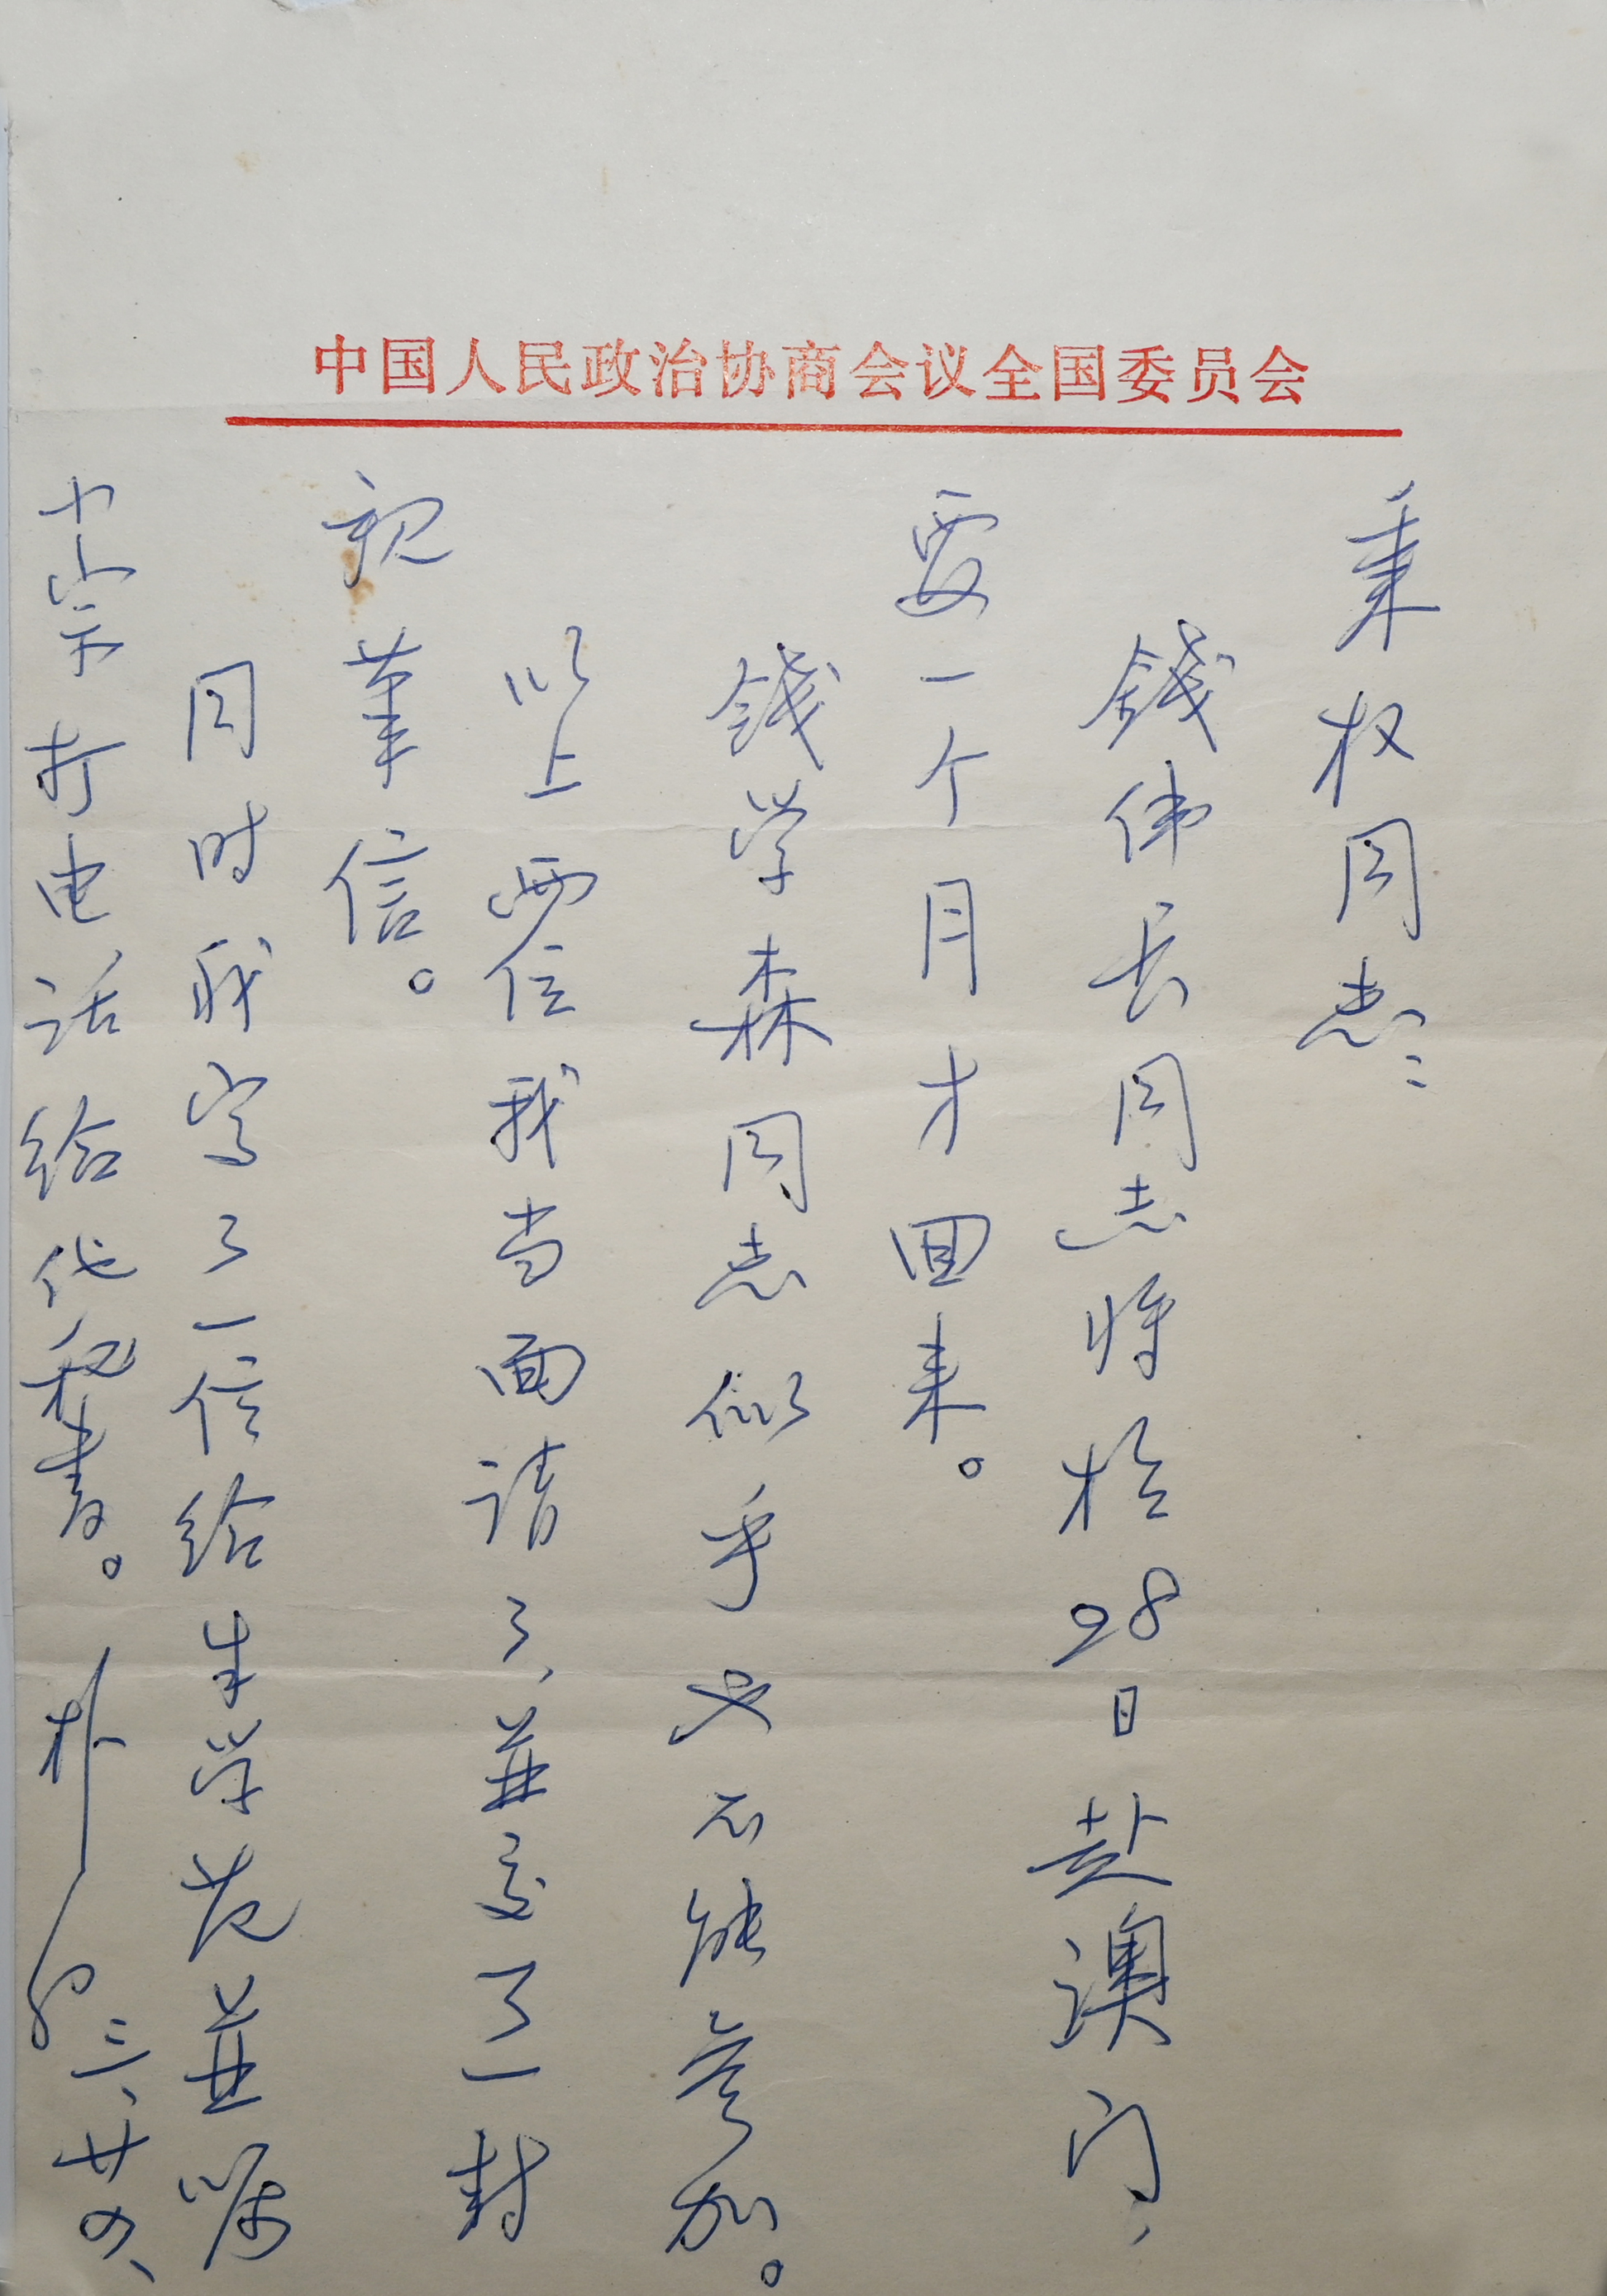 中国人民政治协商会议全国委员会
秉权同志：
錢伟长同志将於28日赴澳门，
要一个月才回来。
錢学森同志似乎也不能参加。
以上两位我当面请了，并交了一封
親笔信。
同时我写了一信给朱学范并嘱
打电话给代